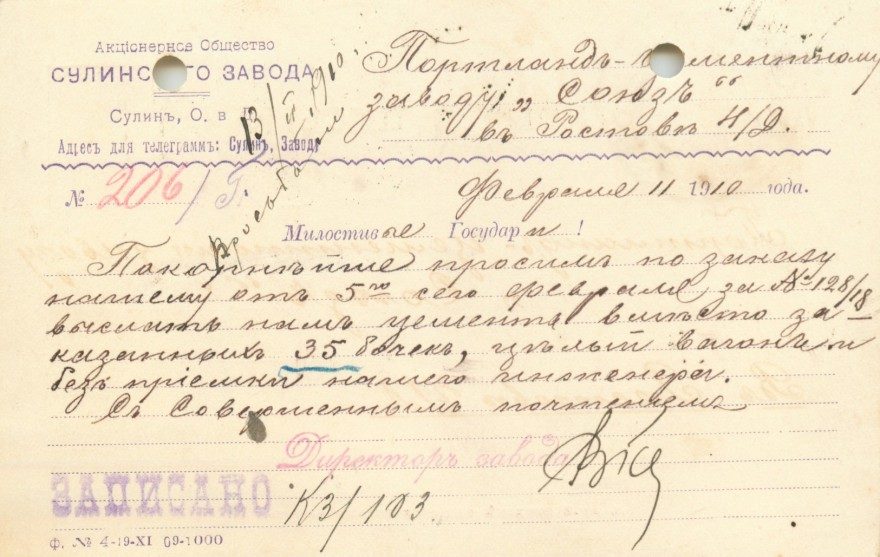 Акціонерное Общество
СУЛИНСКАГО ЗАВОДА
Сулинъ, О. в. Д.
Адресъ для телеграммъ: Сулинъ, Заводъ
Портландъ-Цементному
заводу „Союзъ“
въ Ростовѣ Н/Д.
13/II 1910.
№ 206/Г.
Февраля 11 1910 года.
Милостивые Государи!
Покорнѣйше просимъ по заказу
нашему отъ 5го сего февраля за № 128/18
выслать намъ цемента вмѣсто за
казанныхъ 35 бочекъ, цѣлый вагонъ и
безъ пріемки нашего инженера.
Съ Совершеннымъ почтеніемъ
Директоръ завода
ЗАПИСАНО
К3/103.
Ф. № 4-19-XI 09-1000